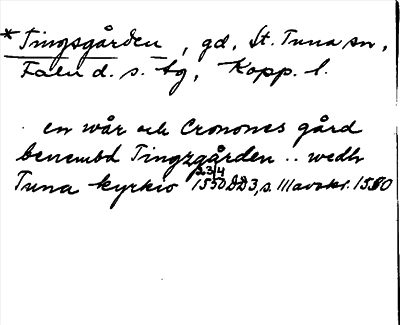 *Tingsgården, gd, St. Tuna sn,
Falu d. s. tg, Kopp. l.
en wår och Cronones gård
benembd Tingzgården .. wedh
Tuna kyrkio 23/4 1550 DD3, s. 111 avskr. 1580